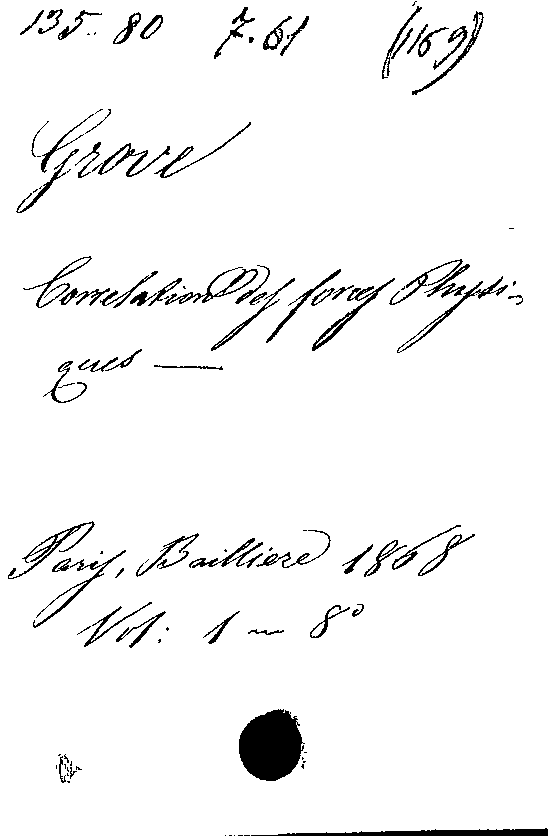 135.80 7.61 (1169)
Grove
Correlation des forces Physi-
ques —
Paris, Bailliere 1868
Vol: 1 — 8°